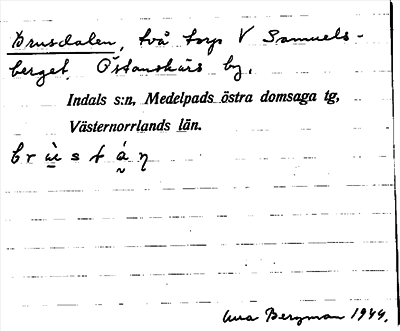 Brusdalen, två torp V Samuels-
berget, Östanskärs by.
Indals s:n, Medelpads östra domsaga tg,
Västernorrlands län.
Bergman 1944.